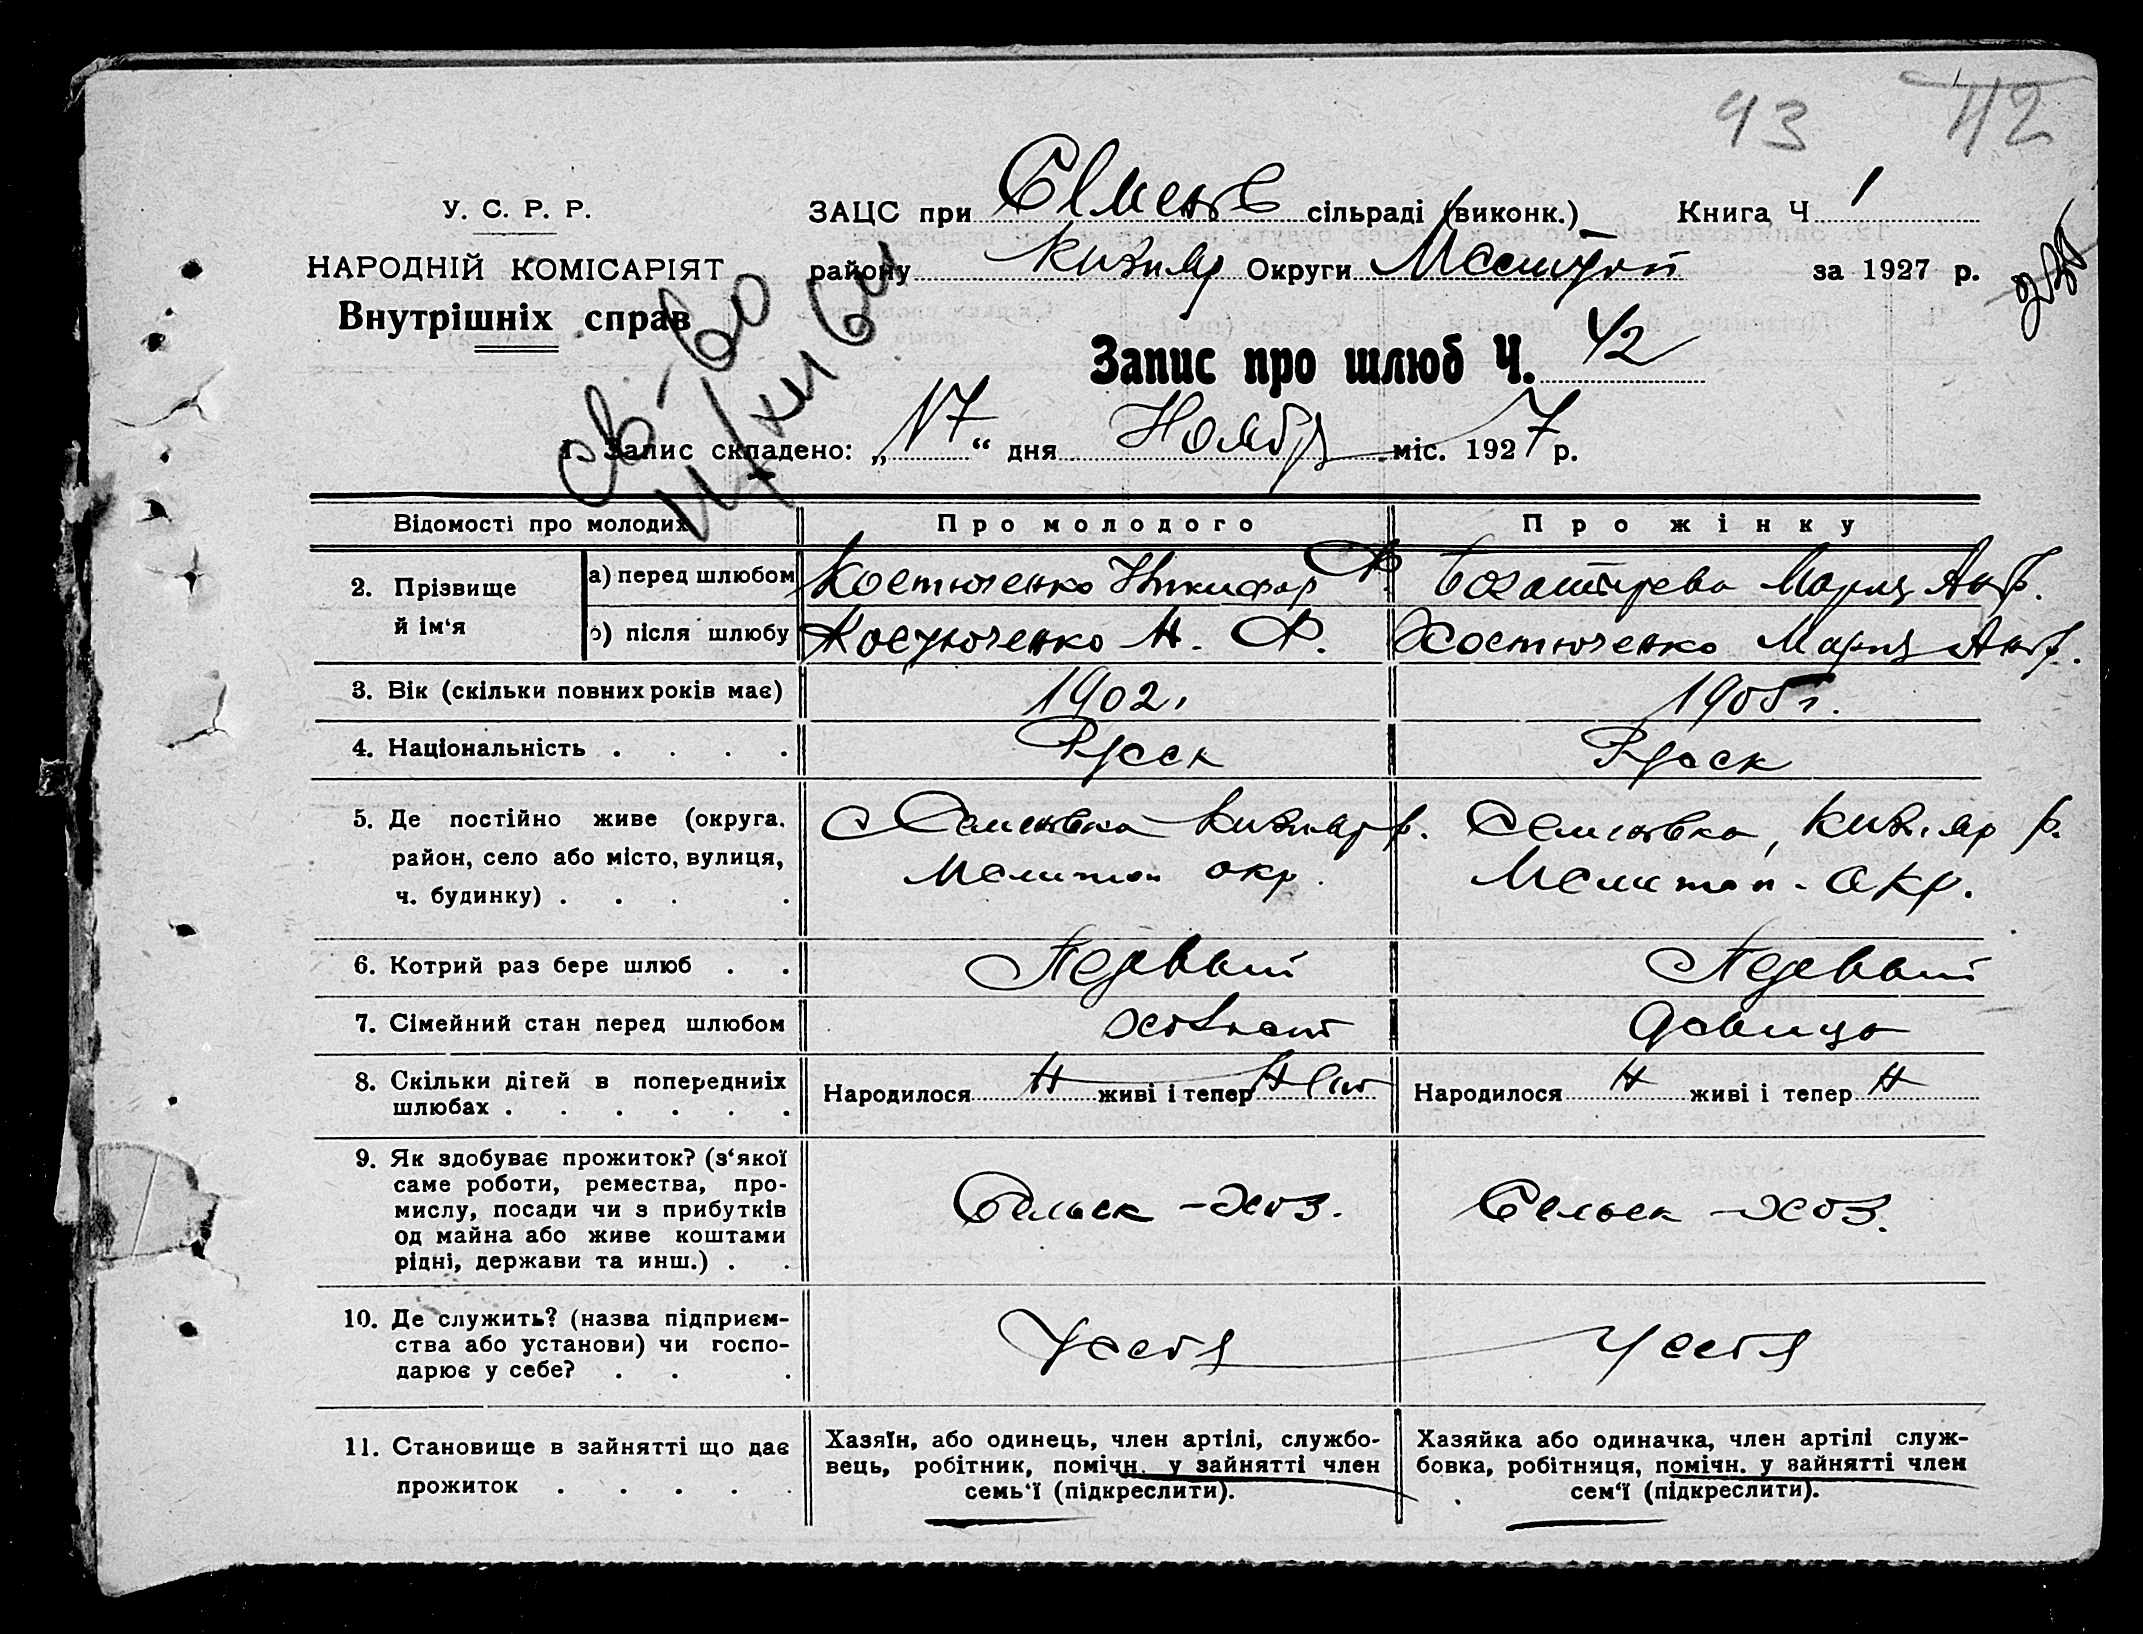 43 42
У. С. Р. Р.
НАРОДНІЙ КОМІСАРІЯТ
Внутрішніх справ
св-во
ЗАЦС при Сімен сільраді (виконк.) Книга Ч 1
району Кизияр Округи за 1927 р.
Запис про шлюб Ч. 42
1. Запис складено: „17“ дня Ноябр міс. 1927 р.
Відомості про молодих Про молодого Про жінку
2. Прізвище й ім‘я
а) перед шлюбом Костюченко Никифор Ф. Богатирева Мария Ант.
б) після шлюбу Костюченко Н. Ф. Костюченко Мария Ант.
3. Вік (скільки повних років має) 1902. 1905 г.
4. Національність . . . . Русск Русск
5. Де постійно живе (округа, район, село або місто, вулиця, ч. будинку) . . . .
Семеновка Кизияр р.
Мелитоп окр.
Семеновка, Кизияр р.
Мелитоп. окр.
6. Котрий раз бере шлюб . . Первый Первый
7. Сімейний стан перед шлюбом Холост Девица
8. Скільки дітей в попередниіх шлюбах . . . . . .
Народилося Н живі і тепер Нет
Народилося Н живі і тепер Н
9. Як здобуває прожиток? (з‘якої
саме роботи, ремества, про-
мислу, посади чи з прибутків
од майна або живе коштами
рідні, держави та инш.) . .
Сельск-хоз. Сельск-хоз.
10. Де служить? (назва підприєм-
ства або установи) чи госпо-
дарює у себе? . . .
У себя У себя
11. Становище в зайнятті що дає
прожиток . . . . .
Хазяїн, або одинець, член артілі, службо-
вець, робітник, помічн. у зайнятті член
семь‘ї (підкреслити).
Хазяйка або одиначка, член артілі служ-
бовка, робітниця, помічн. у зайнятті член
сем‘ї (підкреслити).